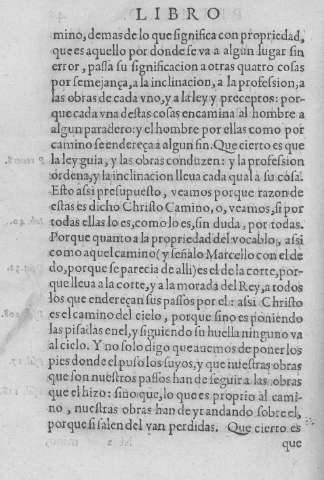 LIBRO
mino, demas de lo que significa con propriedad,
que es aquello por donde se va a algun lugar sin
error, passa su significacion a otras quatro cosas
por semejança, a la inclinacion, a la profession, a
las obras de cada vno, y a la ley y preceptos: por-
que cada vna destas cosas encamina al hombre a
algun paradero: y el hombre por ellas como por
camino se endereça a algun fin. Que cierto es que
la ley guia, y las obras conduzen: y la profession
ordena, y la inclinacion lleua cada qual a su cosa.
Esto assi presupuesto, veamos porque razon de
estas es dicho Christo Camino, o, veamos, si por
todas ellas lo es, como lo es, sin duda, por todas.
Porque quanto a la propriedad del vocablo, assi
como aquel camino (y señalo Marcello con el de
do, porque se parecia de alli) es el de la corte, por-
que lleua a la corte, y a la morada del Rey, a todos
los que endereçan sus passos por el: assi Christo
es el camino del cielo, porque sino es poniendo
las pisadas en el, y siguiendo su huella ninguno va
al cielo. Y no solo digo que auemos de poner los
pies donde el puso los suyos, y que nuestras obras
que son nuestros passos han de seguir a las obras
que el hizo: sino que, lo que es proprio al cami-
no, nuestras obras han de yr andando sobre el,
porque si salen del van perdidas. Que cierto es
que